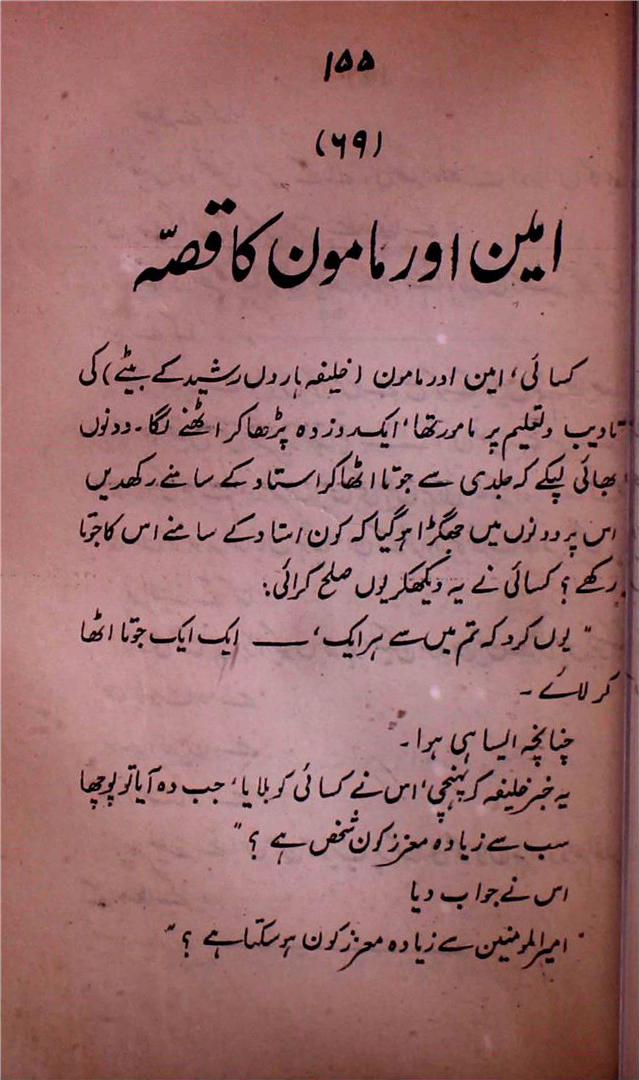 ۱۵۵
(۶۹)
امین اور مامون کا قصّہ
کسائی، امین اور مامون (خلیفہ ہاروں رشید کے بیٹے) کی
تادیب و تعلیم پر مامور تھا، ایک روز وہ پڑھا کر اٹھنے لگا۔ دونوں
بھائی لپکے کہ جلدی سے جوتا اٹھا کر استاد کے سامنے رکھدیں
اس پر دونوں میں جھگڑا ہو گیا کہ کون استاد کے سامنے اس کا جوتا
رکھے؟ کسائی نے یہ دیکھکر یوں صلح کرائی:
"یوں کرو کہ تم میں سے ہر ایک، — ایک ایک جوتا اٹھا
کر لائے۔
چنانچہ ایسا ہی ہوا۔"
یہ خبر خلیفہ کو پہنچی، اس نے کسائی کو بلایا، جب وہ آیا تو پوچھا
سب سے زیادہ معزز کون شخص ہے؟"
اس نے جواب دیا
"امیر المومنین سے زیادہ معزز کون ہو سکتا ہے؟"